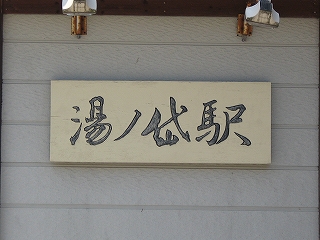 湯ノ岱駅